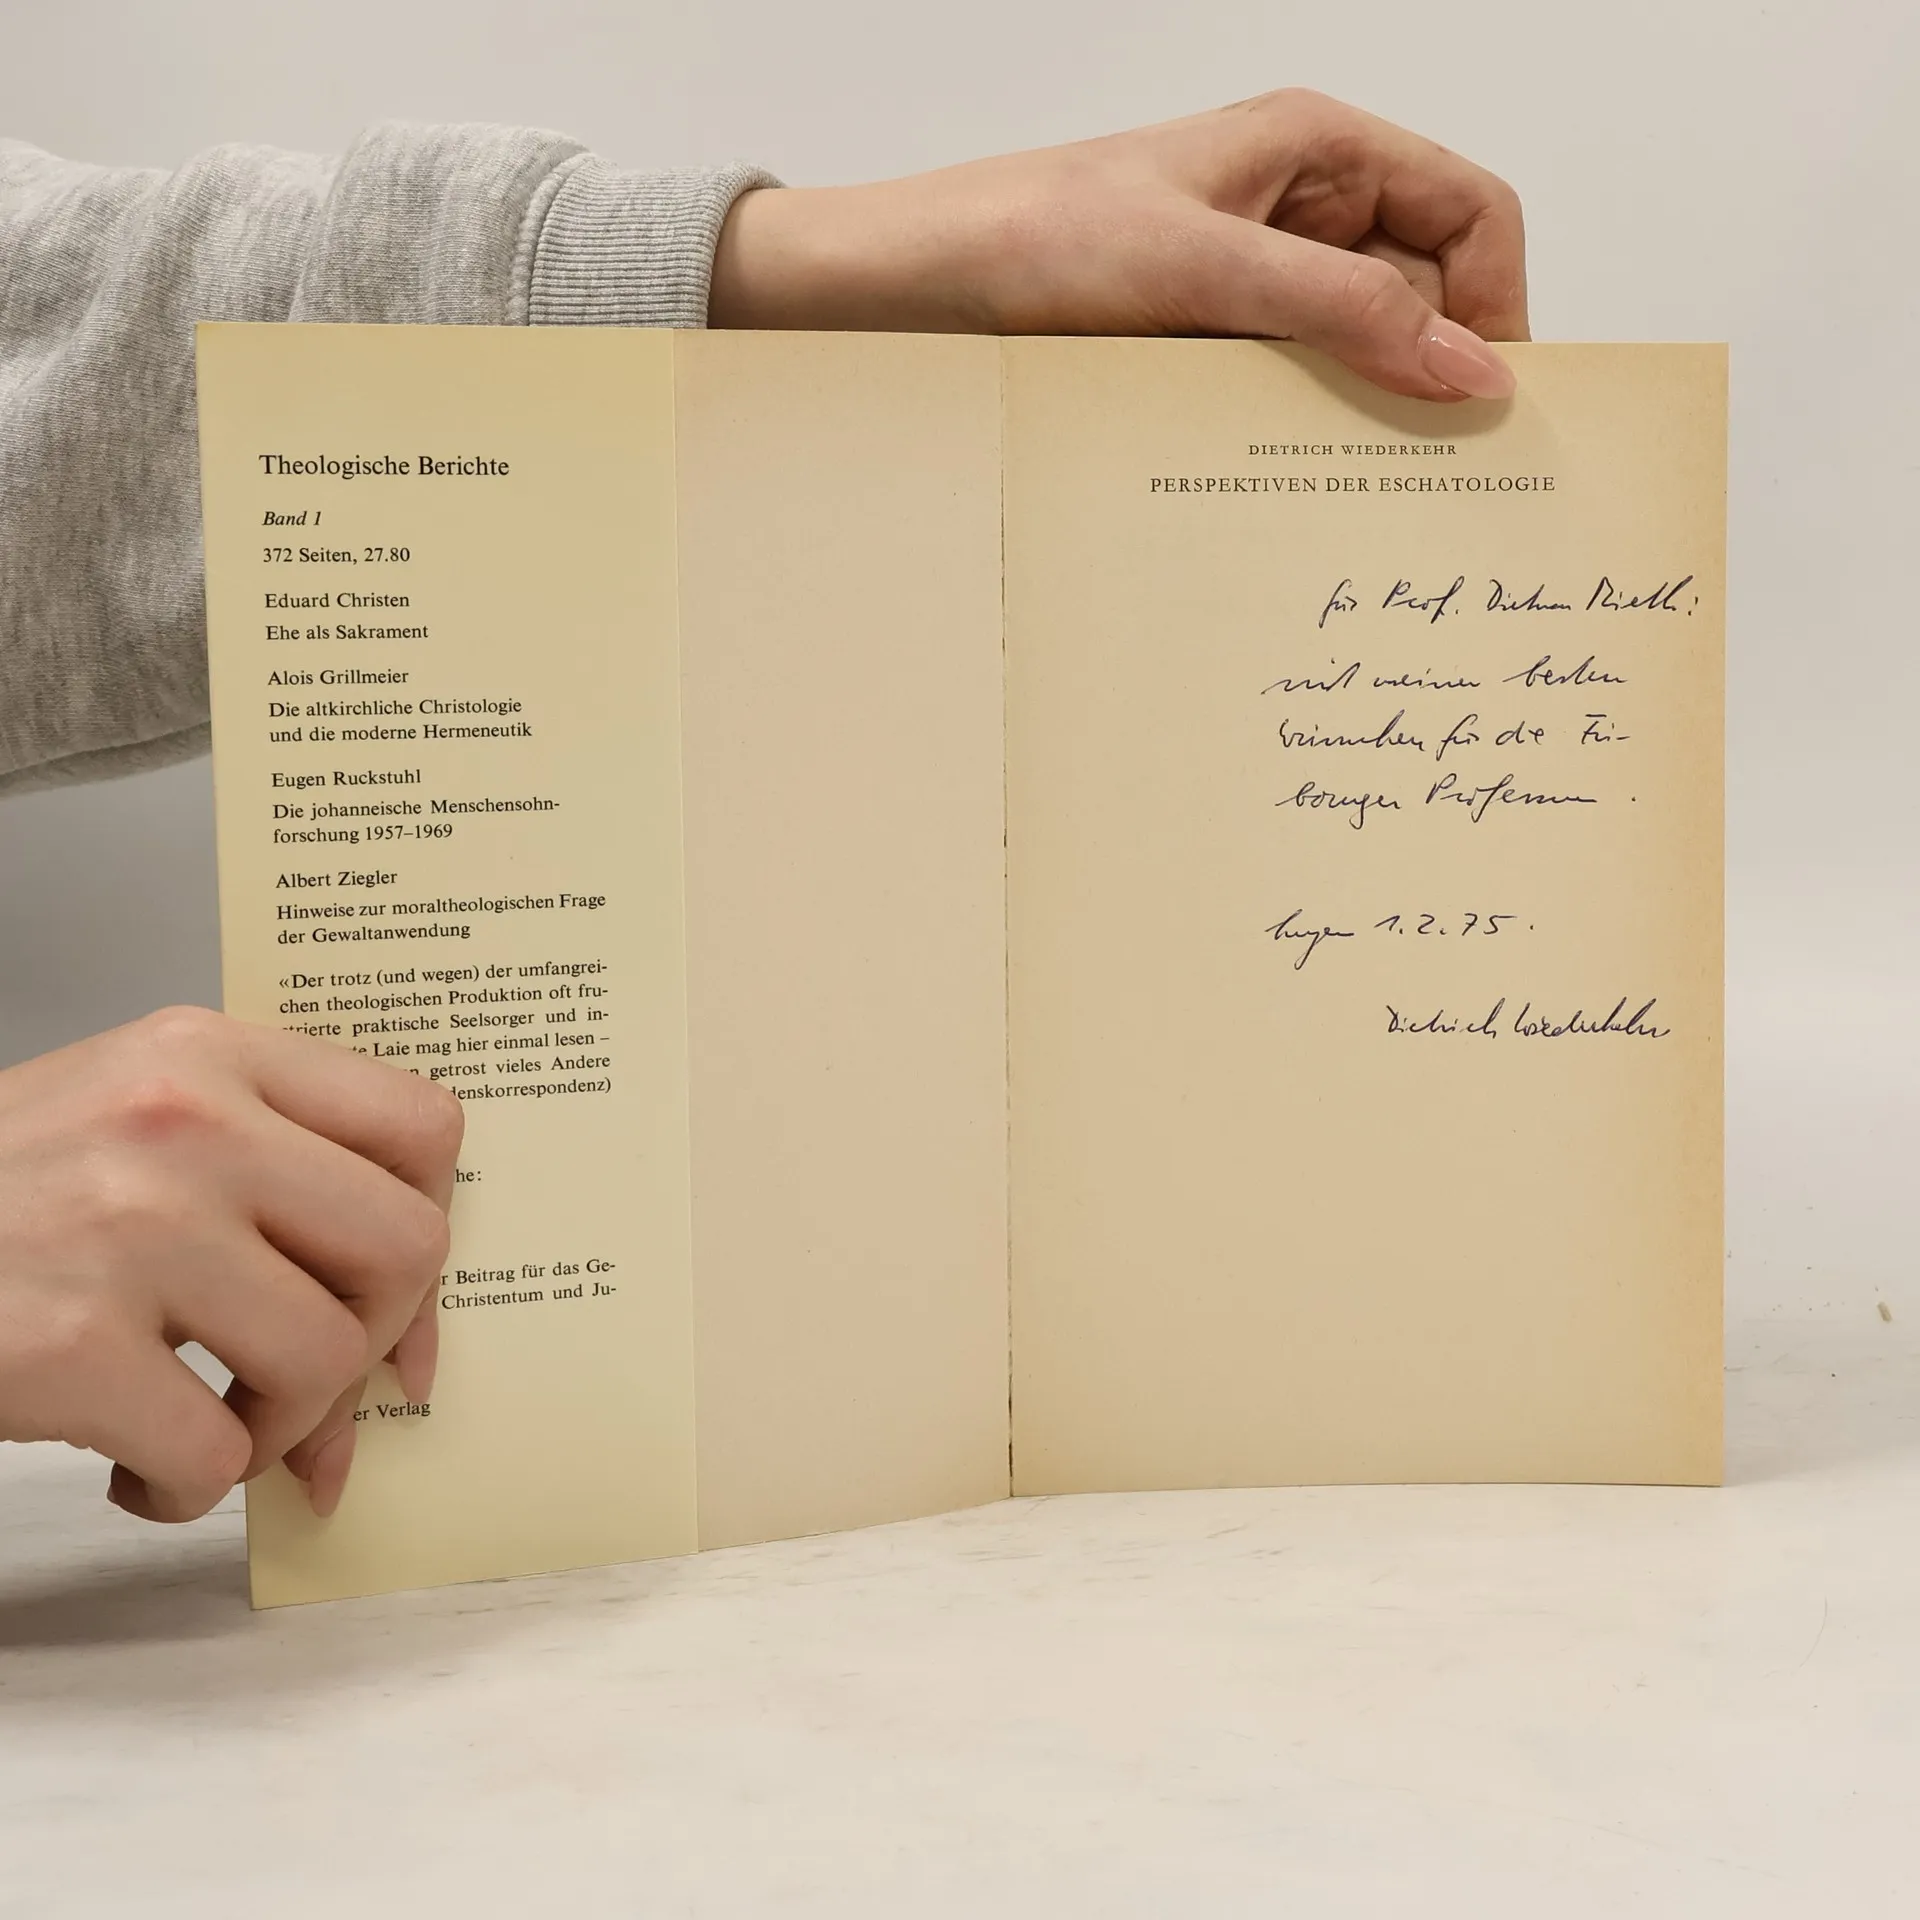 Theologische Berichte
Band 1
372 Seiten, 27.80
Eduard Christen
Ehe als Sakrament
Alois Grillmeier
Die altkirchliche Christologie
und die moderne Hermeneutik
Eugen Ruckstuhl
Die johanneische Menschensohn-
forschung 1957–1969
Albert Ziegler
Hinweise zur moraltheologischen Frage
der Gewaltanwendung
«Der trotz (und wegen) der umfangrei-
chen theologischen Produktion oft fru-
strierte praktische Seelsorger und in-
Laie mag hier einmal lesen –
getrost vieles Andere
denskorrespondenz)
he:
r Beitrag für das Ge-
Christentum und Ju-
er Verlag
DIETRICH WIEDERKEHR
PERSPEKTIVEN DER ESCHATOLOGIE
für Prof. Dietmar Mieth:
mit meinen besten
Wünschen für die Fri-
bourger Professur.
1.2.75.
Dietrich Wiederkehr